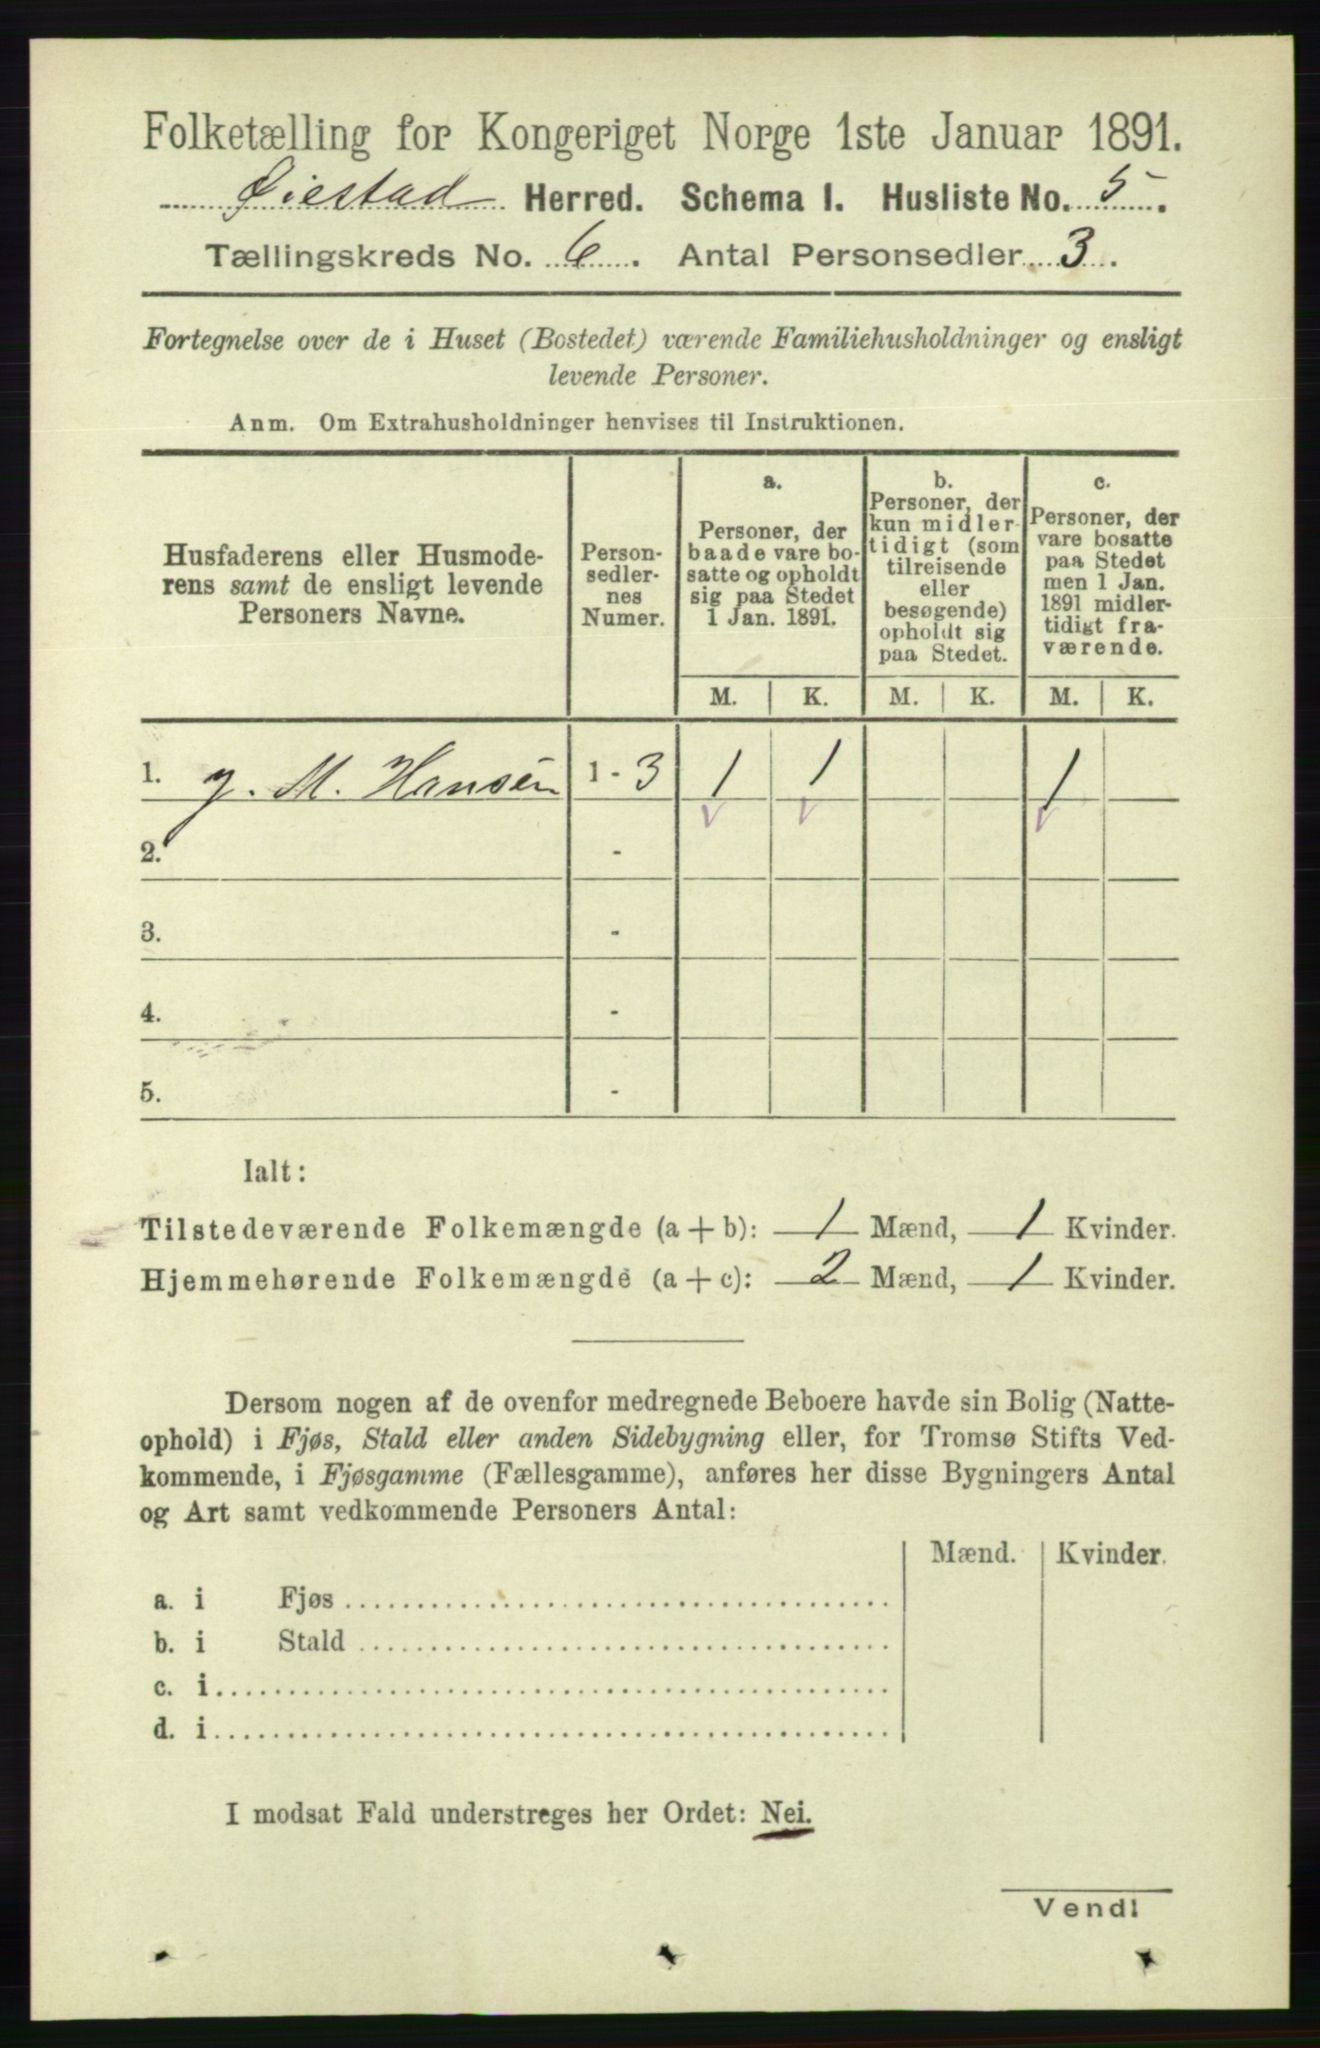 Folketælling for Kongeriget Norge 1ste Januar 1891.
Øiestad Herred. Schema I. Husliste No. 5.
Tællingskreds No. 6. Antal Personsedler 3.
Fortegnelse over de i Huset (Bostedet) værende Familiehusholdninger og ensligt
levende Personer.
Anm. Om Extrahusholdninger henvises til Instruktionen.
Husfaderens eller Husmode-
rens samt de ensligt levende
Personers Navne.
Person-
sedler-
nes
Numer.
a.
Personer, der
baade vare bo-
satte og opholdt
sig paa Stedet
1 Jan. 1891.
b.
Personer, der
kun midler-
tidigt (som
tilreisende
eller
besøgende)
opholdt sig
paa Stedet.
c.
Personer, der
vare bosatte
paa Stedet
men 1 Jan.
1891 midler-
tidigt fra-
værende.
M. K. M. K. M. K.
1. J. M. Hansen 1 - 3 1 1 1
2. -
3. -
4. -
5. -
Ialt:
Tilstedeværende Folkemængde (a + b): 1 Mænd, 1 Kvinder.
Hjemmehørende Folkemængde (a + c): 2 Mænd, 1 Kvinder.
Dersom nogen af de ovenfor medregnede Beboere havde sin Bolig (Natte-
ophold) i Fjøs, Stald eller anden Sidebygning eller, for Tromsø Stifts Ved-
kommende, i Fjøsgamme (Fællesgamme), anføres her disse Bygningers Antal
og Art samt vedkommende Personers Antal:
Mænd. Kvinder.
a. i Fjøs
b. i Stald
c. i
d. i
I modsat Fald understreges her Ordet: Nei.
Vend!